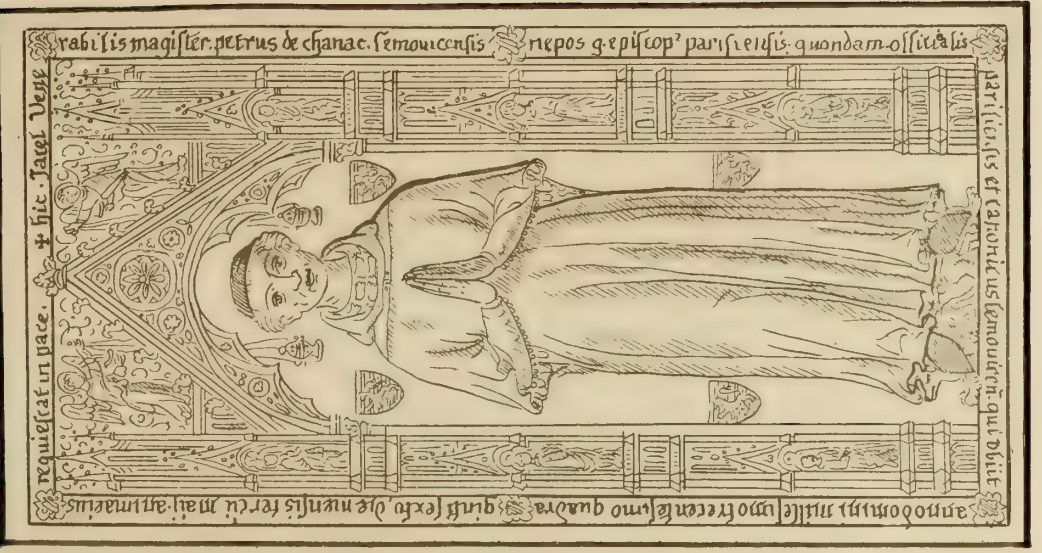 ✝ hic · Jacet Vene
rabilis magiſter. petrus de chanac. lemouicenſis nepos g. epiſcopꝰ pariſienſis. quondam officialis
pariſien.ſis et canonicus lemouicen̄. qui obiit
anno domini milleſimo trecenteſimo quadra ſexto die menſis maij. anima eius
requieſcat in pace.